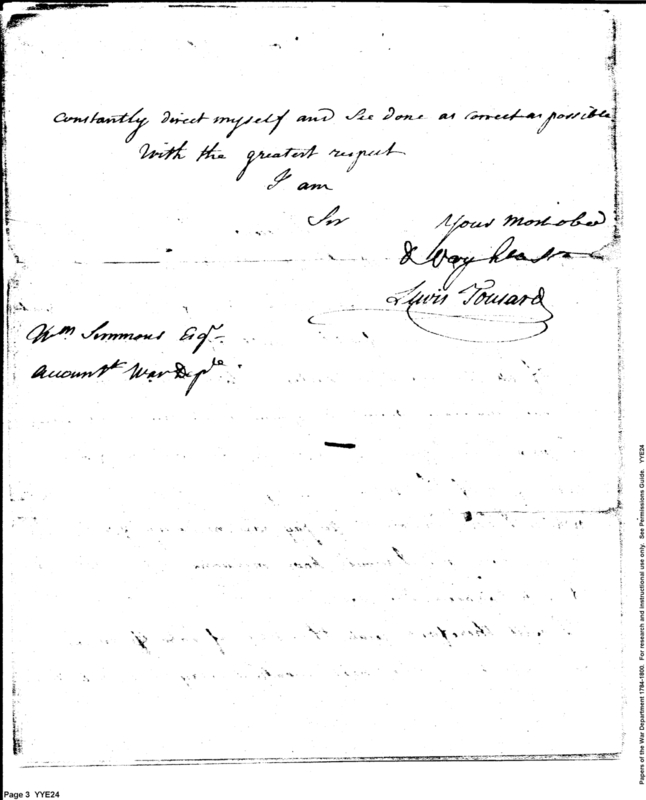 constantly direct myself and See done as correct as possible
With the greatest respect
I am
Sir
Your most obed
& Very
Lewis Tousard
Wm Simmons Esqr
Accountt War Depte.
Page 3 YYE24
Papers of the War Department 1784-1800. For research and instructional use only. See Permissions Guide. YYE24